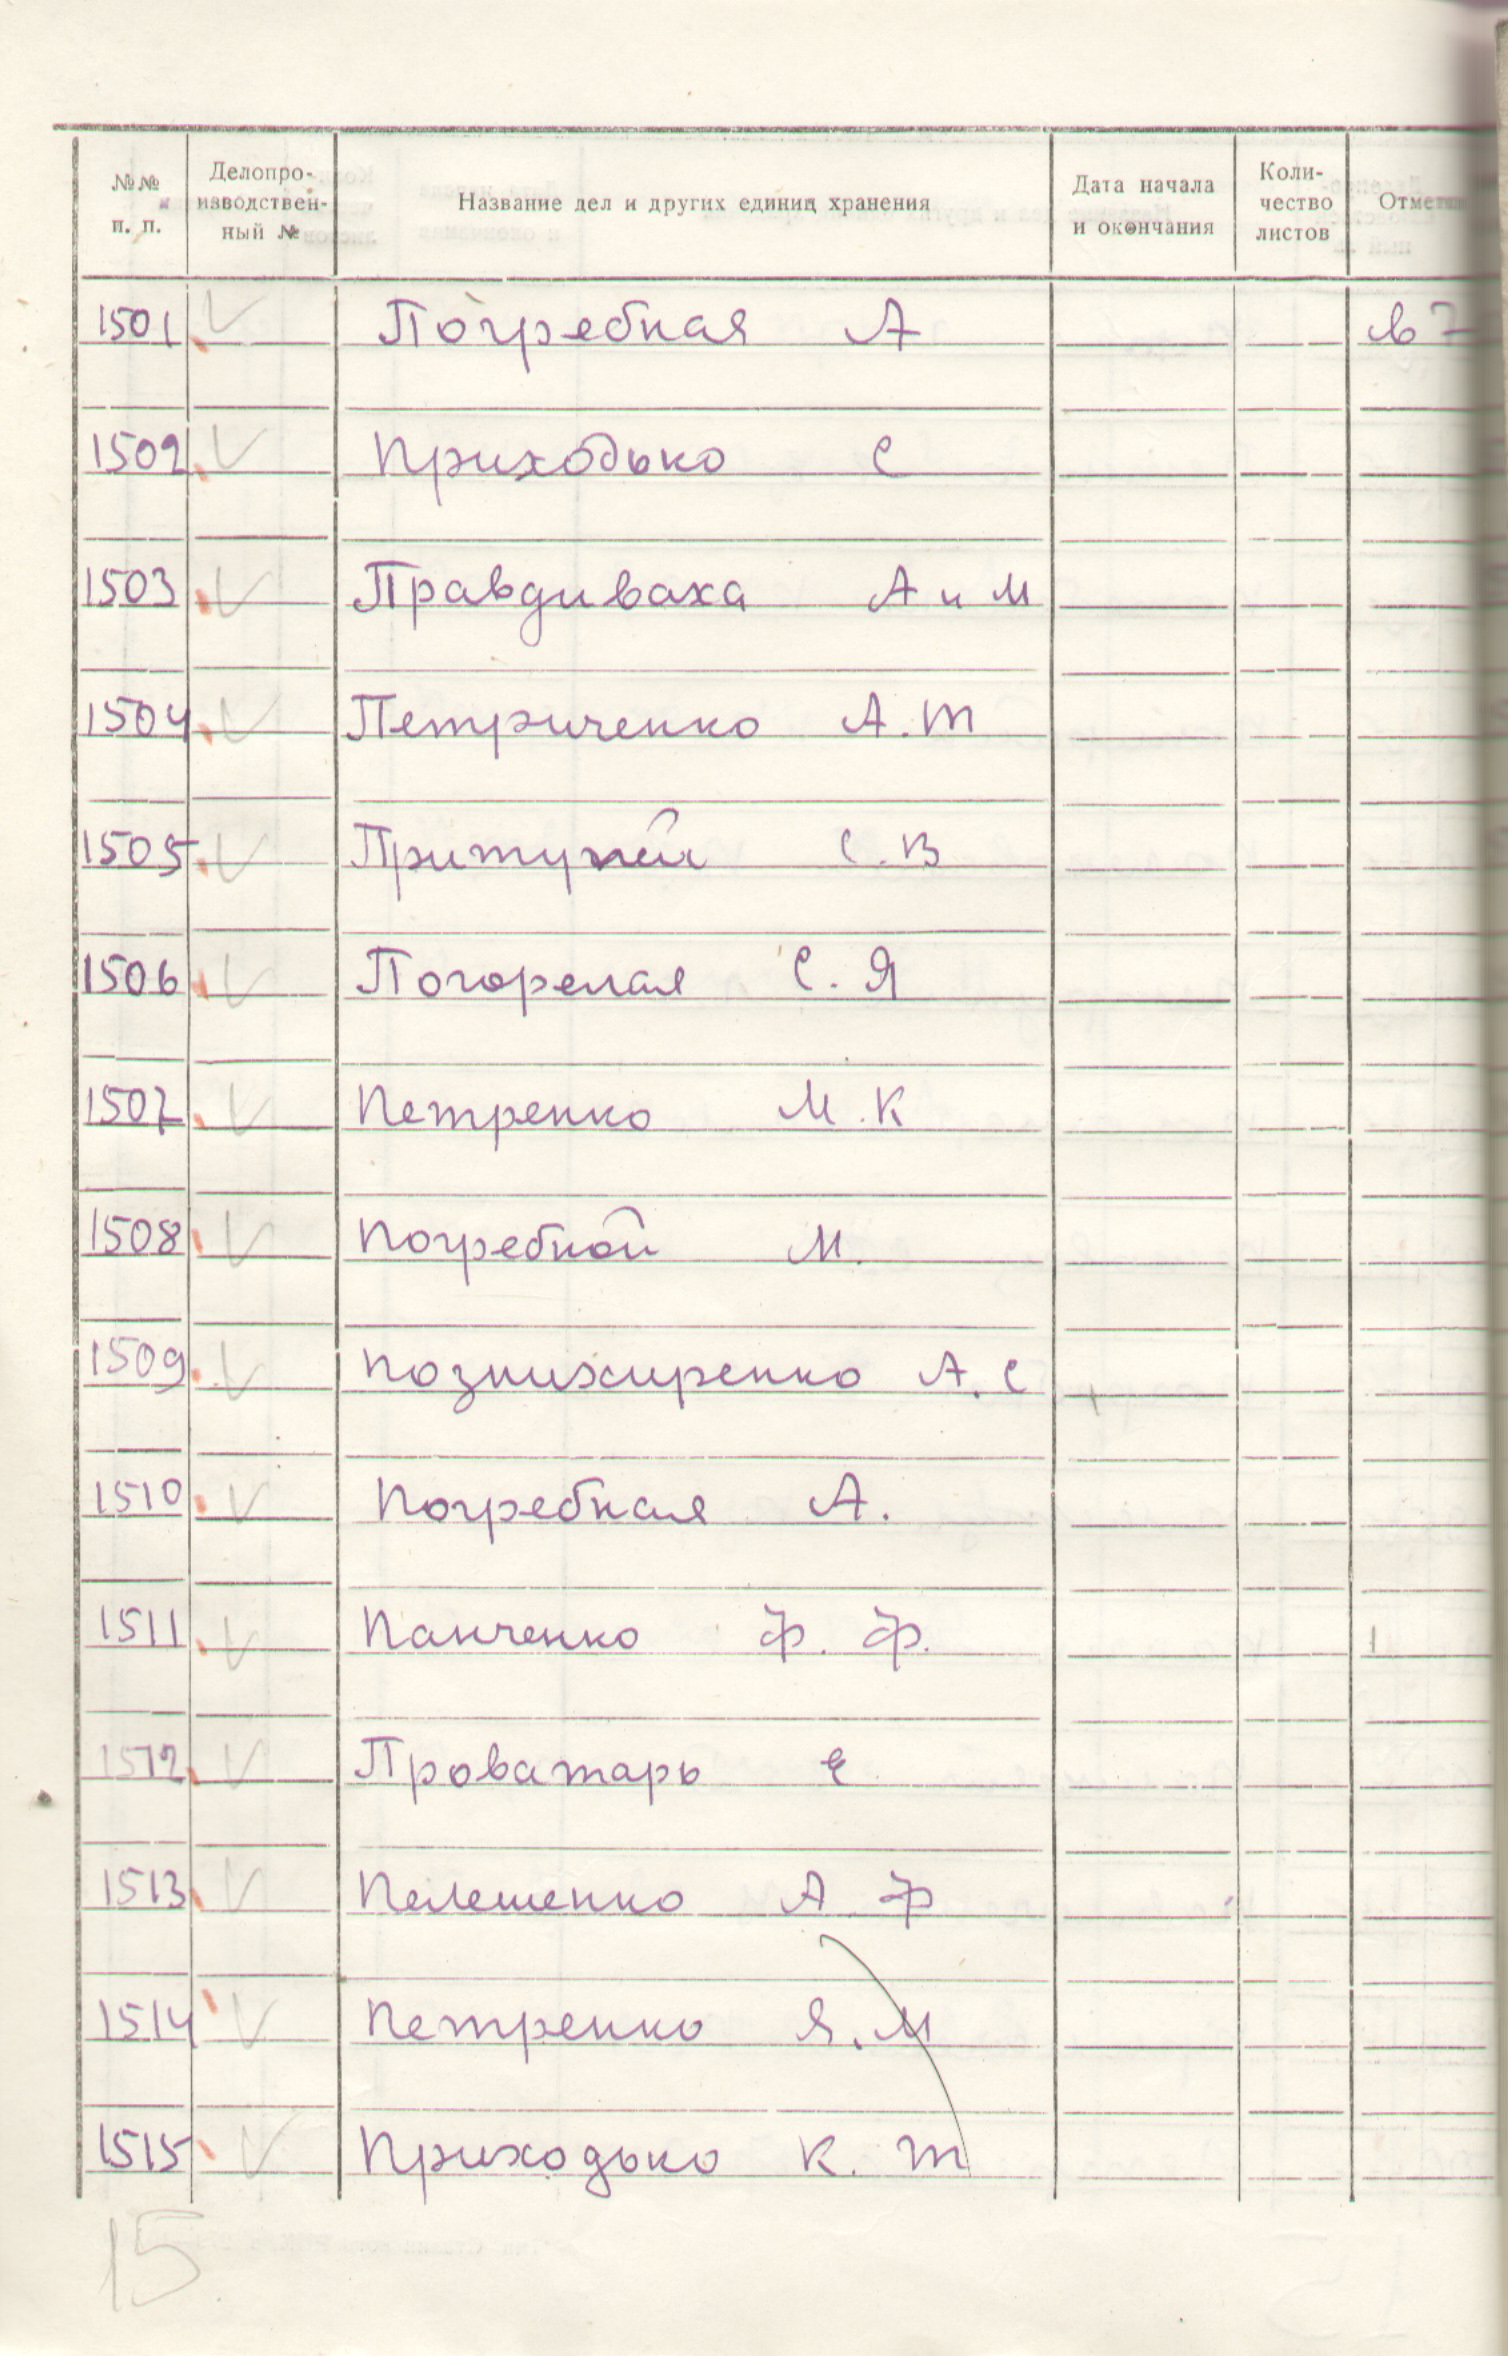 №№ п. п. Делопроизводственный № Название дел и других единиц хранения Дата начала и окончания Количество листов
1501 Погребная А
1502 Приходько С
1503 Правдиваха А и М
1504 Петриченко А.Т
1505 Притупей С.В
1506 Погорелая С.Я
1507 Петренко М.К
1508 Погребной М.
1509 Познихиренко А.С
1510 Погребная А.
1511 Панченко Ф. Ф.
1512 Проватарь Е
1513 Пелешенко А Ф
1514 Петренко Я.М
1515 Приходько К. Т
15